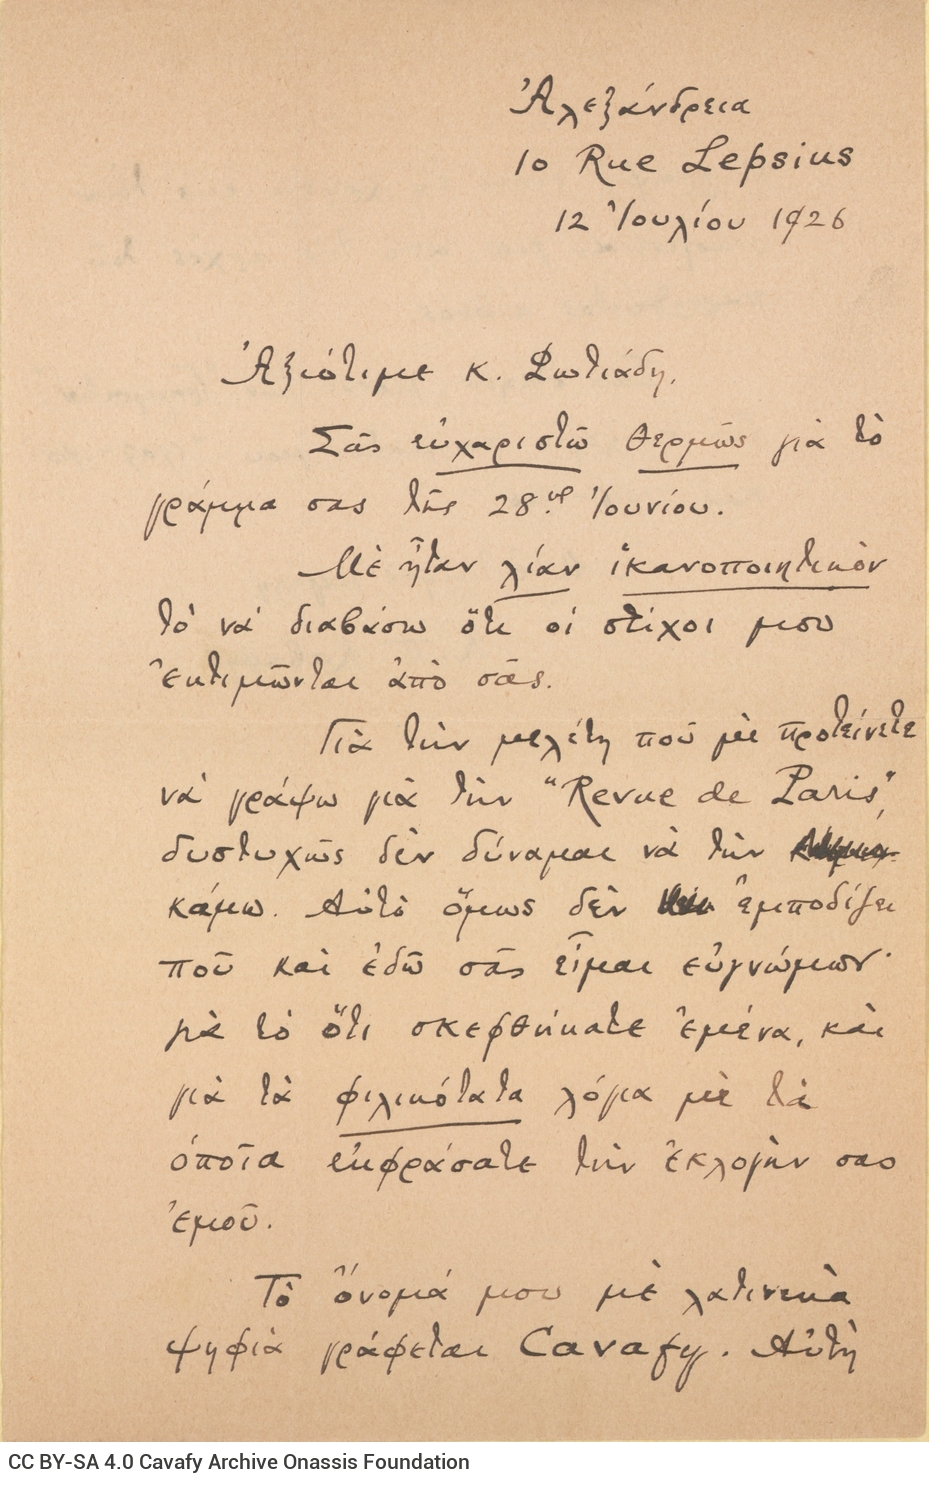 Ἀλεξάνδρεια
10 Rue Lepsius
12 Ἰουλίου 1926
Ἀξιότιμε κ. Φωτιάδη,
Σᾶς εὐχαριστῶ θερμῶς γιὰ τὸ
γράμμα σας τῆς 28ης Ἰουνίου.
Μὲ ἦταν λίαν ἱκανοποιητικὸν
τὸ νὰ διαβάσω ὅτι οἱ στίχοι μου
ἐκτιμῶνται ἀπὸ σᾶς.
Γιὰ τὴν μελέτη ποῦ μὲ προτείνετε
νὰ γράψω γιὰ τὴν "Revue de Paris",
δυστυχῶς δὲν δύναμαι νὰ τὴν
κάμω. Αὐτὸ ὅμως δὲν ἐμποδίζει
ποῦ καὶ ἐδῶ σᾶς εἶμαι εὐγνώμων·
γιὰ τὸ ὅτι σκεφθήκατε ἐμένα, καὶ
γιὰ τὰ φιλικότατα λόγια μὲ τὰ
ὁποῖα ἐκφράσατε τὴν ἐκλογὴν σας
ἐμοῦ.
Τὸ ὄνομά μου μὲ λατινικὰ
ψηφιὰ γράφεται Cavafy. Αὐτὴ
CC BY-SA 4.0 Cavafy Archive Onassis Foundation